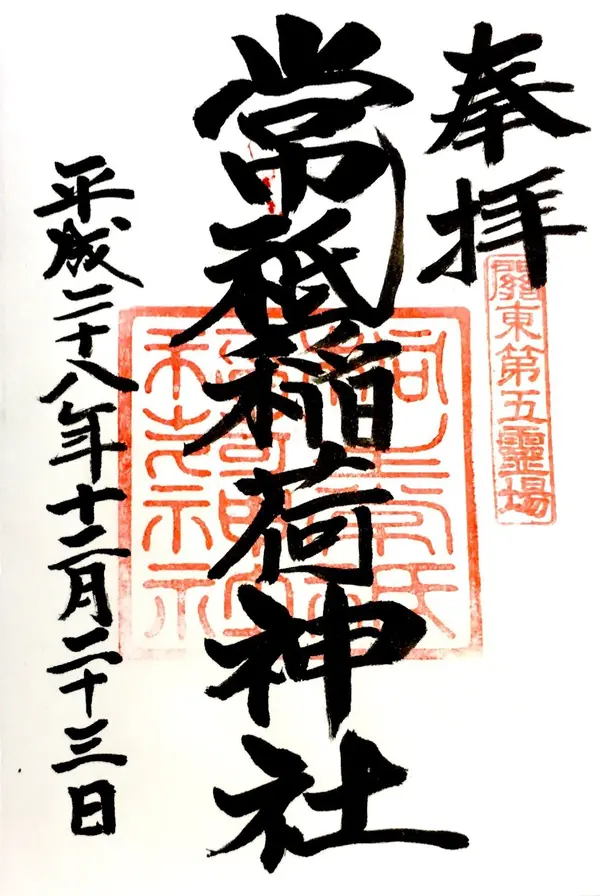 奉拝
關東第五靈場
常祇稲荷神社
平成二十八年十二月二十三日